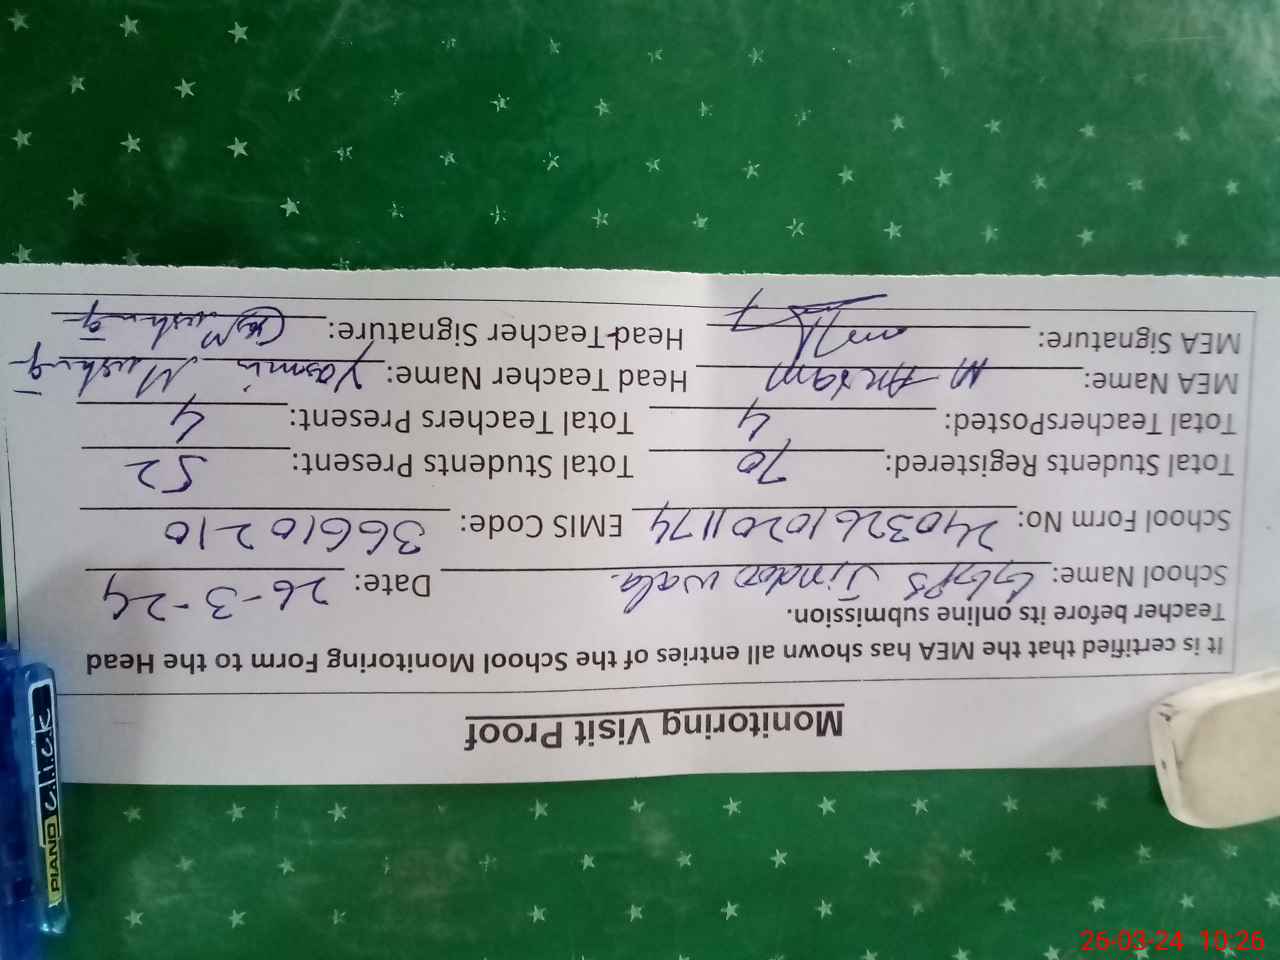 Monitoring Visit Proof
It is certified that the MEA has shown all entries of the School Monitoring Form to the Head
Teacher before its online submission.
School Name: GGPS Jindoo wala. Date: 26-3-24
School Form No: 24032610201174 EMIS Code: 36610210
Total Students Registered: 70 Total Students Present: 52
Total TeachersPosted: 4 Total Teachers Present: 4
MEA Name: M Akram Head Teacher Name: Yasmin Mushtaq
MEA Signature: Head Teacher Signature: Mushtaq
PIANO click
26-03-24 10:26